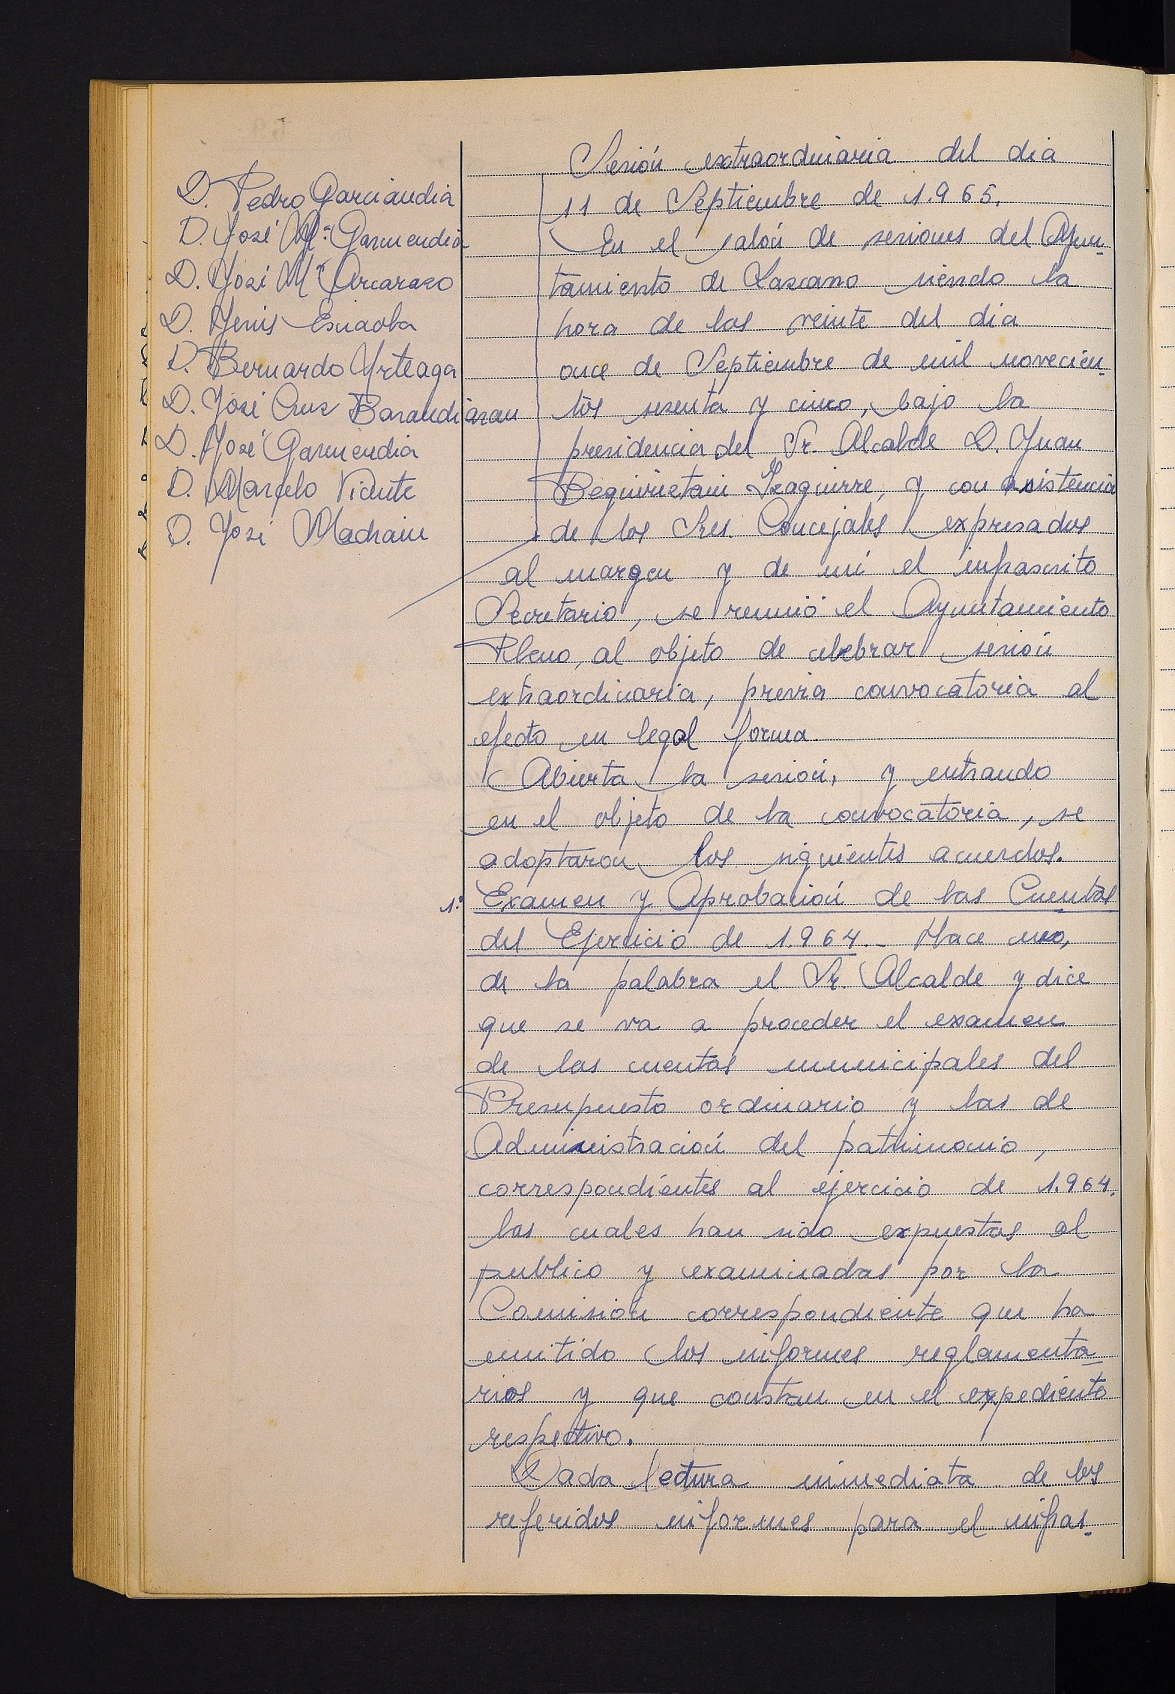 D. Pedro Garciandia
D. José Mª Garmendia
D. José Mª Arcarazo
D. Jenis Esnaola
D. Bernardo Urteaga
D. José Cruz Barandiaran
D. José Garmendia
D. Marcelo Vicente
D. José Madrain
Sesión extraordinaria del dia
11 de Septiembre de 1.965.
En el salón de sesiones del Ayun-
tamiento de Lazcano siendo la
hora de las veinte del dia
once de Septiembre de mil novecien-
tos sesenta y cinco, bajo la
presidencia del Sr. Alcalde D. Juan
Beguiristain Izaguirre, y con asistencia
de los Sres. Concejales expresados
al margen y de mi el infrascrito
Secretario, se reunió el Ayuntamiento
Pleno, al objeto de celebrar sesión
extraordinaria, previa convocatoria al
efecto en legal forma.
Abierta la sesión, y entrando
en el objeto de la convocatoria, se
adoptaron los siguientes acuerdos.
1.º Examen y Aprobación de las Cuentas
del Ejercicio de 1.964.- Hace uso,
de la palabra el Sr. Alcalde y dice
que se va a proceder el examen
de las cuentas municipales del
Presupuesto ordinario y las de
Administración del patrimonio,
correspondientes al ejercicio de 1.964,
las cuales han sido expuestas al
publico y examinadas por la
Comisión correspondiente que ha
emitido los informes reglamenta-
rios y que constan en el expediento
respectivo.
Dada lectura inmediata de los
referidos informes para el infras-